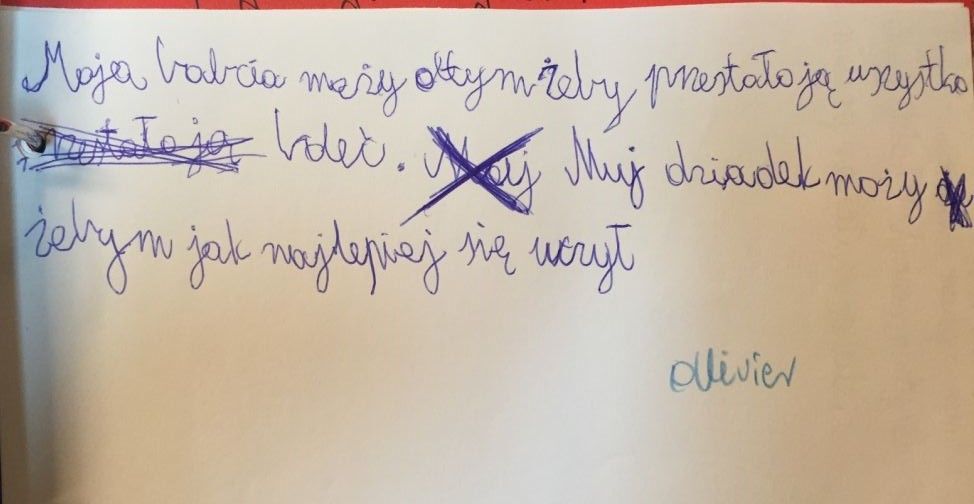 Moja babcia moży otym żeby przestało ją wszystko
boleć. Muj dziadek moży
żebym jak najlepiej się uczył
Olivier